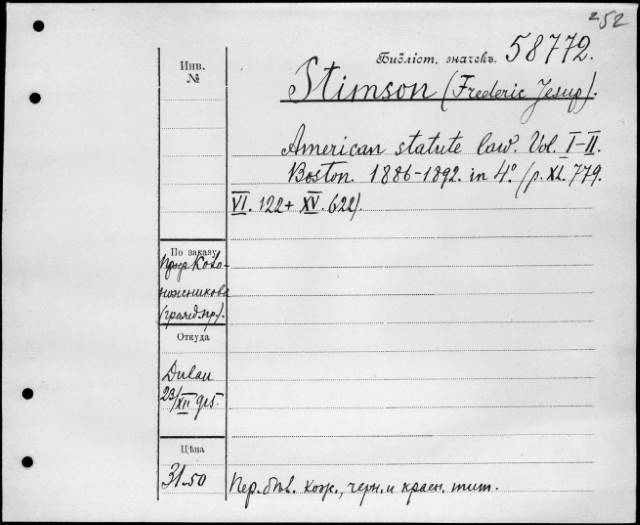 252
Библіот. значекъ. 58772.
Инв.
№
Stimson (Frederic Jesup).
American statute law. Vol. I–II.
Boston. 1886–1892. in 4º. (p. XI. 779.
VI. 122 + XV. 622).
По заказу
Проф
ножникова
(гражд. пр.).
Откуда
Dulau
23/XII 915.
Цѣна
31.50
Пер. бѣл. кож., черн. и красн. тит.